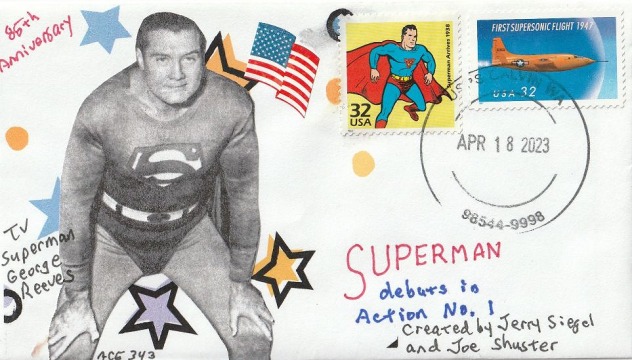 85th
Anniversary
TV
Superman
George
Reeves
ACE 343
S
Superman Arrives 1938
32
USA
FIRST SUPERSONIC FLIGHT 1947
USA 32
USPS CALVIN WA
APR 18 2023
98544-9998
SUPERMAN
debuts in
Action No. 1
Created by Jerry Siegel
and Joe Shuster